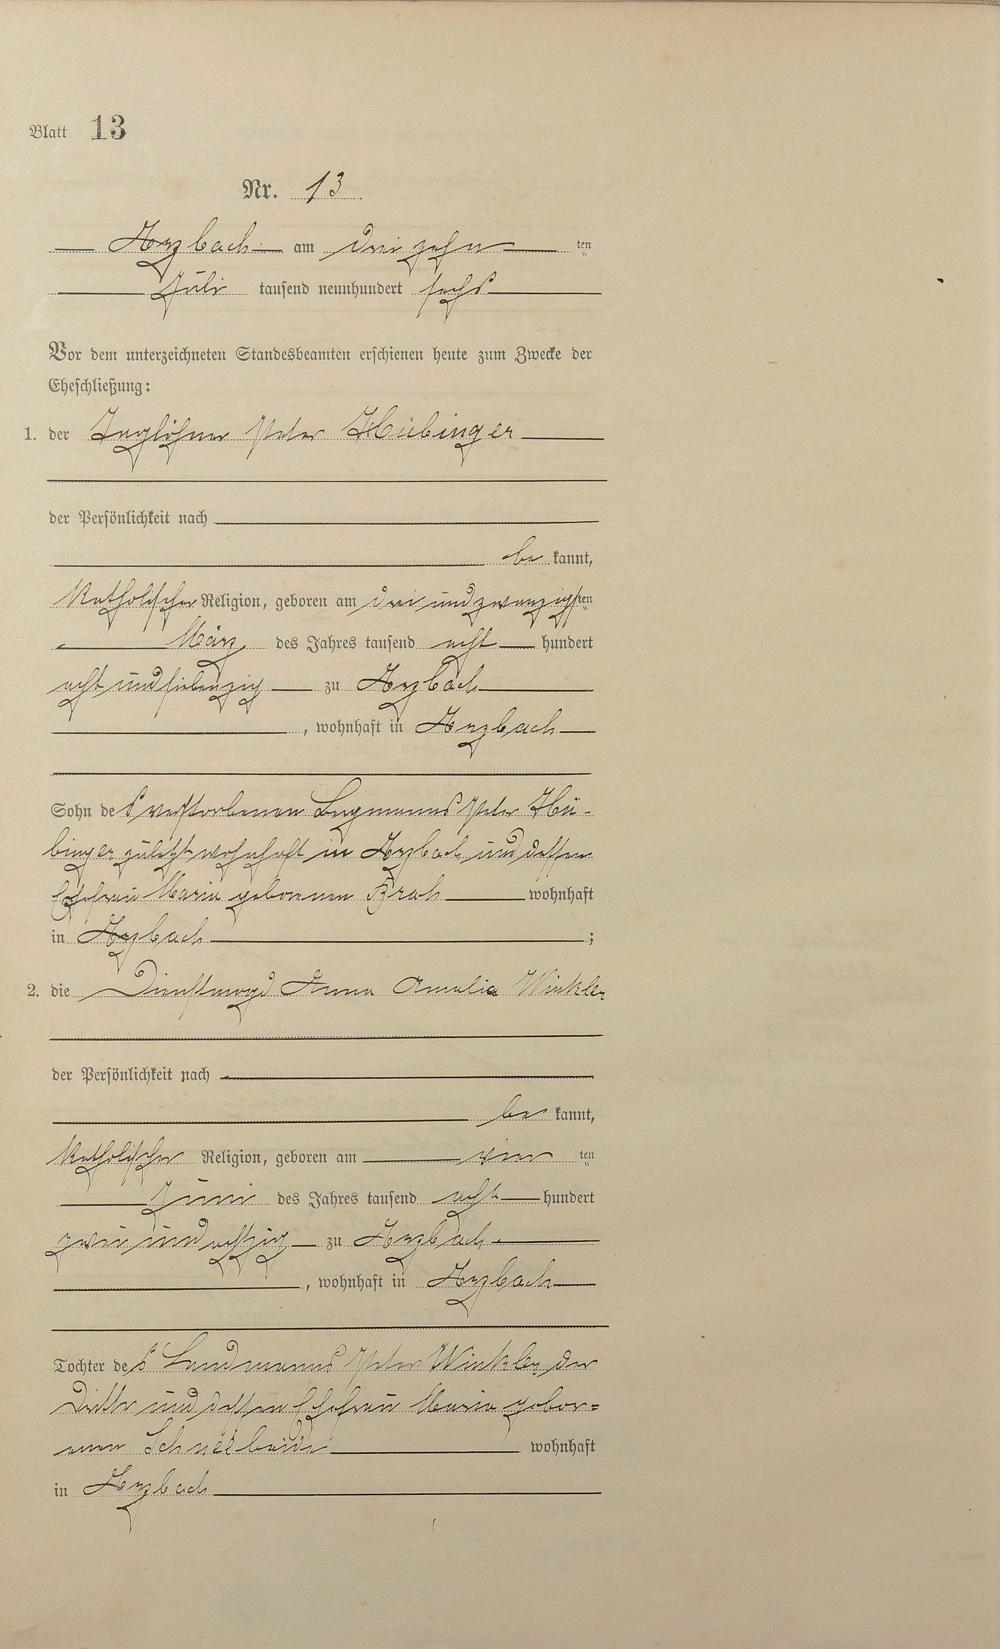 Blatt 13
Nr. 13
Arzbach am dreizehn ten
Juli tausend neunhundert sechs
Vor dem unterzeichneten Standesbeamten erschienen heute zum Zwecke der
Eheschließung:
1. der Taglöhner Peter Hübinger
der Persönlichkeit nach
be kannt,
katholischer Religion, geboren am drei und zwanzigsten
März des Jahres tausend acht hundert
acht und siebenzig zu Arzbach
, wohnhaft in Arzbach
Sohn des verstorbenen Bergmanns Peter Hü-
binger zuletzt wohnhaft in Arzbach und dessen
Ehefrau Maria geborenen wohnhaft
in Arzbach ;
2. die Dienstmagd Anna Amalia Winkler
der Persönlichkeit nach
be kannt,
katholischer Religion, geboren am vier ten
Juni des Jahres tausend acht hundert
zwei und achtzig zu Arzbach
, wohnhaft in Arzbach
Tochter des Landmanns Peter Winkler der
Dritte und dessen Ehefrau Maria gebor=
enen wohnhaft
in Arzbach